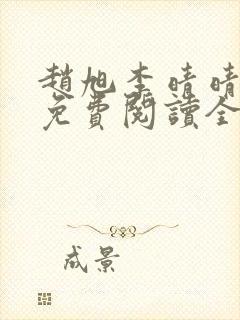 趙旭李晴晴
免費閱讀全
成景